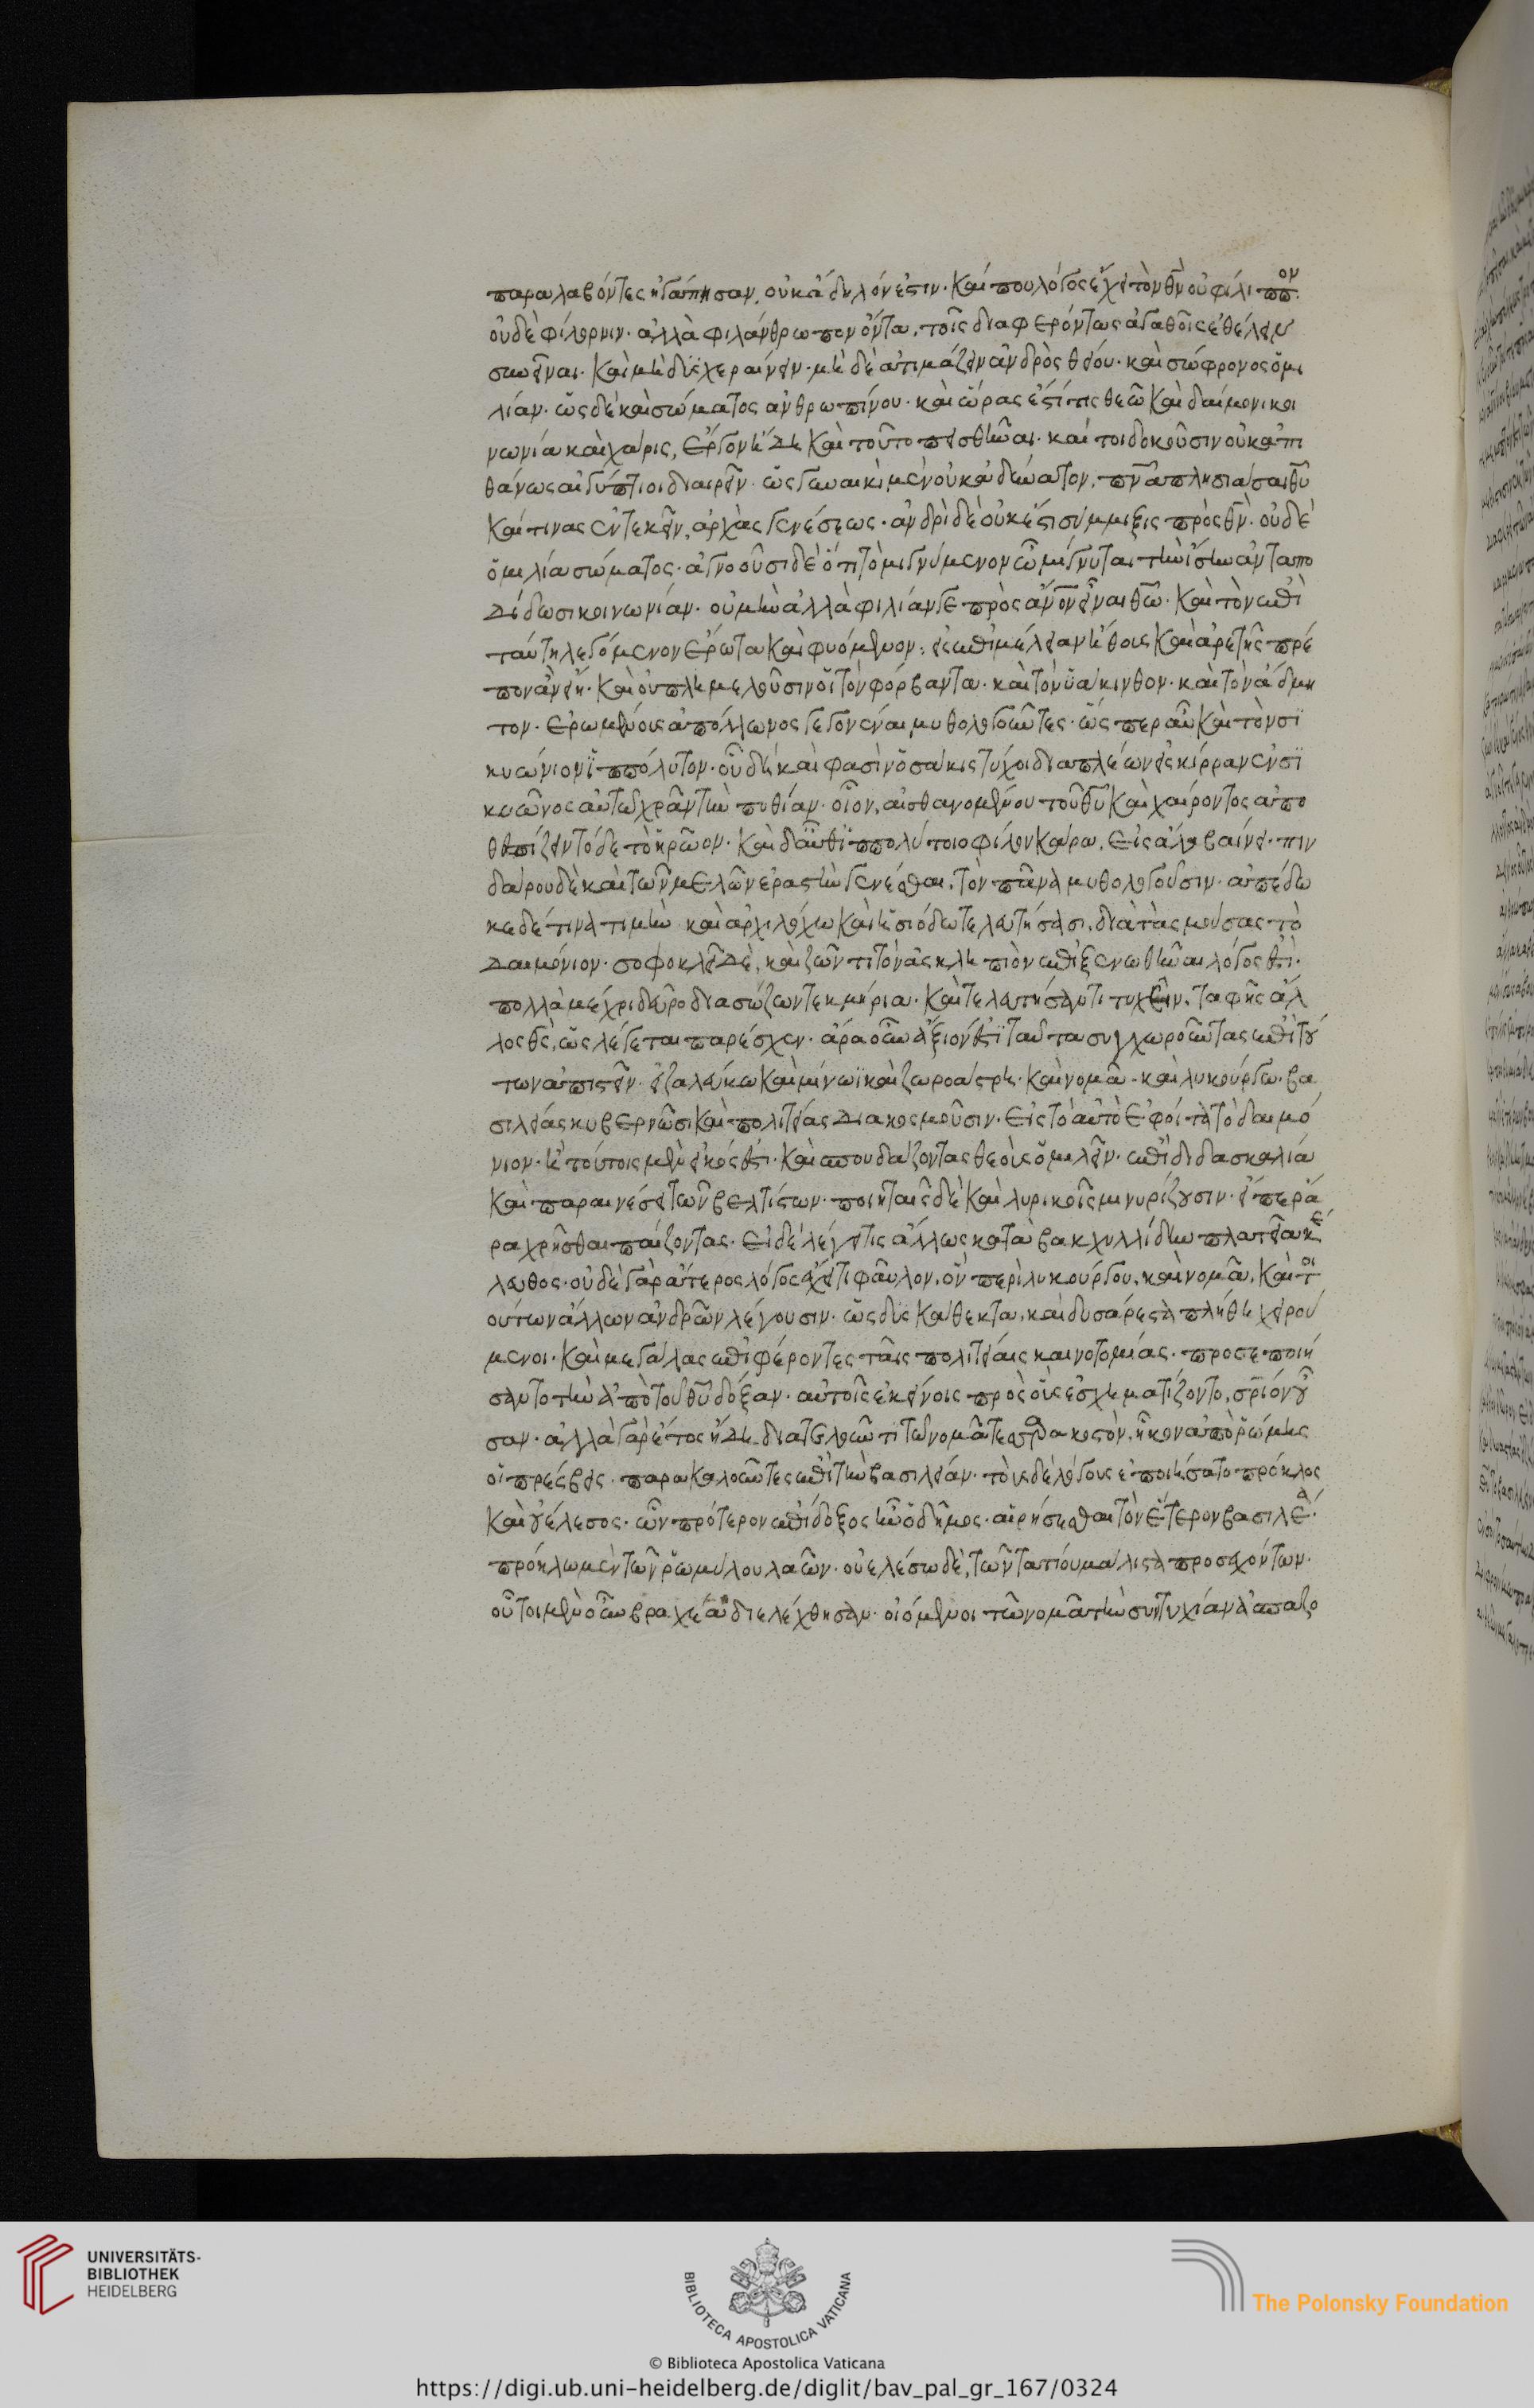 παραλαβόντες ἠγάπησαν, οὐκ ἄδηλόν ἐστιν. Καί που λόγος ἔχει τὸν θν̄ οὐ φίλιππον.
οὐδὲ φίλορνιν. ἀλλὰ φιλάνθρωπον ὄντα, τοῖς διαφερόντως ἀγαθοῖς ἐθέλειν
συνεῖναι. Καὶ μὴ δυσχεραίνειν. μὴ δὲ ἀτιμάζειν ἀνδρὸς θείου. καὶ σώφρονος ὁμι
λίαν. ὡς δὲ καὶ σώματος ἀνθρωπίνου. καὶ ὥρας ἐστί τις θεῶ καὶ δαίμονι κοι
νωνία καὶ χάρις, ἔργον ἤδη καὶ τοῦτο πεισθῆναι. καί τοι δοκοῦσιν οὐκ ἀπι
θάνως αἰγύπτιοι διαιρεῖν. ὡς γυναικὶ μὲν οὐκ ἀδύνατον, πνᾶ πλησιάσαι θῦ
Καί τινας ἐντεκεῖν, ἀρχὰς γενέσεως. ἀνδρὶ δὲ οὐκ ἔστι σύμμιξις πρὸς θν̄. οὐδὲ
ὁμιλία σώματος. ἀγνοοῦσι δὲ ὅτι τὸ μιγνύμενον ᾧ μίγνυται τὴν ἴσην ἀνταπο
δίδωσι κοινωνίαν. οὐ μὴν ἀλλὰ φιλίαν γε πρὸς ἄν̄ον εἶναι θῶ. Καὶ τὸν ἐπὶ
ταύτῃ λεγόμενον ἔρωτα καὶ φυόμενον, εἰς ἐπιμέλειαν ἤθους καὶ ἀρετῆς πρέ
πον ἂν εἴη. Καὶ οὐ πλημμελοῦσιν οἱ τὸν φόρβαντα. καὶ τὸν ὑάκινθον. καὶ τὸν ἄδμη
τον. ἐρωμένους ἀπόλλωνος γεγονέναι μυθολογοῦντες. ὥσπερ αὖ καὶ τὸν σι
κυώνιον ἱππόλυτον. οὗ δὴ καὶ φασὶν ὁσάκις τύχοι διαπλέων εἰς κίρραν ἐν σι
κυῶνος αὐτῶ χρᾶν τὴν πυθίαν. οἷον, αἰσθανομένου τοῦ θῦ καὶ χαίροντος ἀπο
θεσπίζειν τόδε τὸ ἡρῶον. Καὶ δ' αὖθ' ἱππολύτοιο φίλον κάρα, εἰς ἅλα βαίνει. πιν
δάρου δὲ καὶ τῶν μελῶν ἐραστὴν γενέσθαι, τὸν πᾶνα μυθολογοῦσιν. ἀπέδω
κε δέ τινα τιμὴν καὶ ἀρχιλόχω καὶ ἡσιόδω τελευτήσασι, διὰ τὰς μούσας τὸ
δαιμόνιον. σοφοκλεῖ δὲ, καὶ ζῶντι τὸν ἀσκληπιὸν ἐπιξενωθῆναι λόγος ἐστί.
πολλὰ μέχρι δεῦρο διασώζων τεκμήρια. Καὶ τελευτήσαντι τυχεῖν, ταφῆς ἄλ
λος θς̄, ὡς λέγεται παρέσχεν. ἆρα οὖν ἄξιόν ἐστι ταῦτα συγχωροῦντας ἐπὶ τού
των ἀπιστεῖν. εἰ ζαλεύκω καὶ μίνωϊ καὶ ζωροάστρη. Καὶ νομᾶ. καὶ λυκούργω. βα
σιλείας κυβερνῶσι καὶ πολιτείας διακοσμοῦσιν. εἰς τὸ αὐτὸ ἐφοίτα τὸ δαιμό
νιον. ἢ τούτοις μὲν εἰκός ἐστι. Καὶ σπουδάζοντας θεοὺς ὁμιλεῖν. ἐπὶ διδασκαλία
καὶ παραινέσει τῶν βελτίστων. ποιηταῖς δὲ καὶ λυρικοῖς μινυρίζουσιν. εἴπερ ἄ
ρα χρῆσθαι παίζοντας. εἰ δὲ λέγει τις ἄλλως κατὰ βακχυλλίδην πλατεῖα κέ
λευθος. οὐδὲ γὰρ ἅτερος λόγος ἔχει τι φαῦλον, ὃν περὶ λυκούργου, καὶ νομᾶ, Καὶ τοι
ούτων ἄλλων ἀνδρῶν λέγουσιν. ὡς δυσκάθεκτα, καὶ δυσάρεστα πλήθη χειρού
μενοι. Καὶ μεγάλας ἐπιφέροντες ταῖς πολιτείαις καινοτομίας. προσεποιή
σαντο τὴν ἀπὸ τοῦ θῦ δόξαν. αὐτοῖς ἐκείνοις πρὸς οὓς ἐσχηματίζοντο, σρ̄ιον οὖ
σαν. ἀλλὰ γὰρ ἔτος ἤδη διατελοῦντι τῶ νομᾶ τεσσαρακοστὸν, ἧκον ἀπὸ ῥώμης
οἱ πρέσβεις. παρακαλοῦντες ἐπὶ τὴν βασιλείαν. τοὺς δὲ λόγους ἐποιήσατο πρόκλος
καὶ γέλεσος. ὧν πρότερον ἐπίδοξος ἦν ὁ δῆμος. αἱρήσεσθαι τὸν ἕτερον βασιλέα.
πρόκλω μὲν τῶν ῥωμύλου λαῶν. οὐελέσω δὲ, τῶν τατίου μάλιστα προσεχόντων.
οὗτοι μὲν οὖν βραχέα διελέχθησαν. οἰόμενοι τῶ νομᾶ τὴν συντυχίαν ἀσπαζο
UNIVERSITÄTS-
BIBLIOTHEK
HEIDELBERG
BIBLIOTECA APOSTOLICA VATICANA
The Polonsky Foundation
© Biblioteca Apostolica Vaticana
https://digi.ub.uni-heidelberg.de/diglit/bav_pal_gr_167/0324